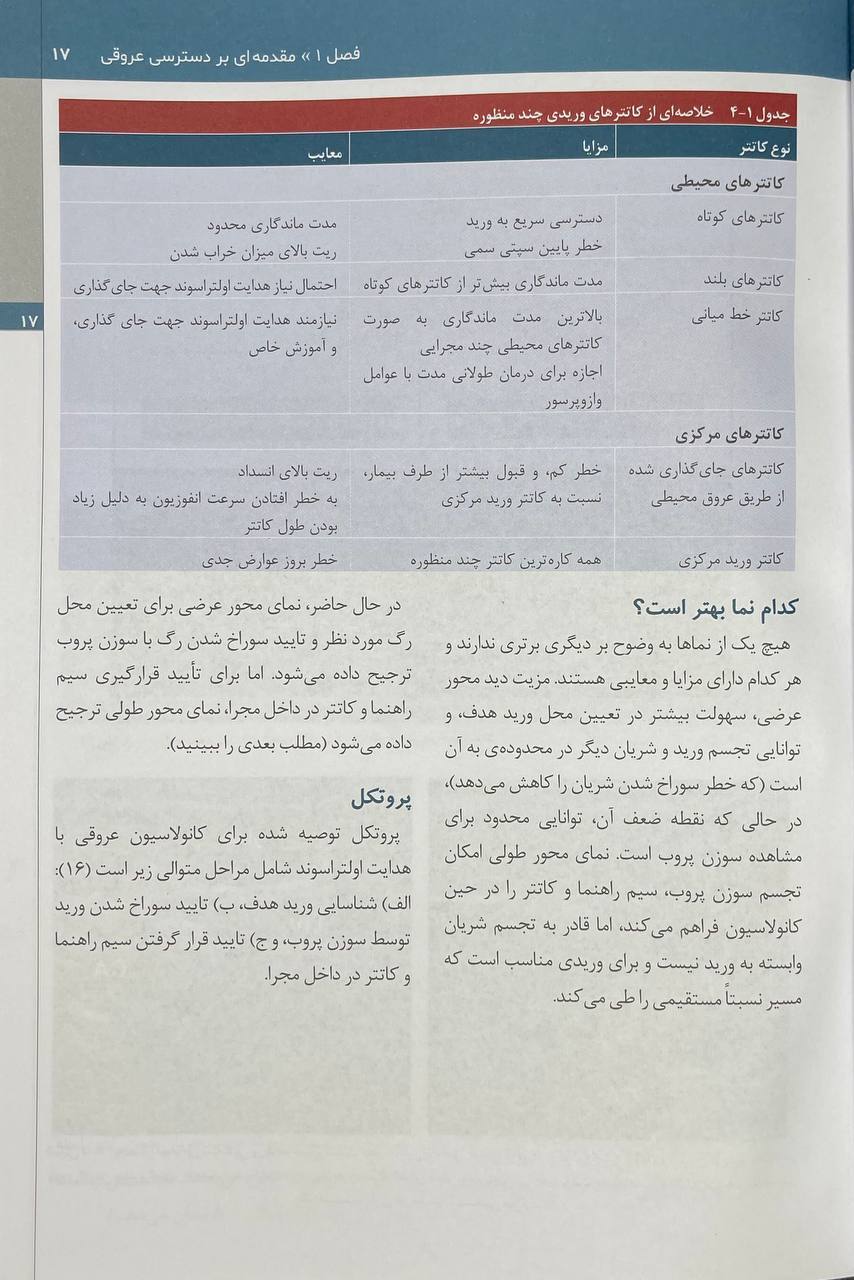 فصل ۱ » مقدمه ای بر دسترسی عروقی ۱۷
جدول ۱-۴ خلاصه‌ای از کاتترهای وریدی چند منظوره
نوع کاتتر مزایا معایب
کاتترهای محیطی
کاتترهای کوتاه دسترسی سریع به ورید مدت ماندگاری محدود
خطر پایین سپتی سمی ریت بالای میزان خراب شدن
کاتترهای بلند مدت ماندگاری بیش‌تر از کاتترهای کوتاه احتمال نیاز هدایت اولتراسوند جهت جای‌گذاری
کاتتر خط میانی بالاترین مدت ماندگاری به صورت نیازمند هدایت اولتراسوند جهت جای گذاری،
کاتترهای محیطی چند مجرایی و آموزش خاص
اجازه برای درمان طولانی مدت با عوامل
وازوپرسور
کاتترهای مرکزی
کاتترهای جای‌گذاری شده خطر کم، و قبول بیشتر از طرف بیمار، ریت بالای انسداد
از طریق عروق محیطی نسبت به کاتتر ورید مرکزی به خطر افتادن سرعت انفوزیون به دلیل زیاد
بودن طول کاتتر
کاتتر ورید مرکزی همه کاره‌ترین کاتتر چند منظوره خطر بروز عوارض جدی
۱۷
کدام نما بهتر است؟
هیچ یک از نماها به وضوح بر دیگری برتری ندارند و
هر کدام دارای مزایا و معایبی هستند. مزیت دید محور
عرضی، سهولت بیشتر در تعیین محل ورید هدف، و
توانایی تجسم ورید و شریان دیگر در محدوده‌ی به آن
است (که خطر سوراخ شدن شریان را کاهش می‌دهد)،
در حالی که نقطه ضعف آن، توانایی محدود برای
مشاهده سوزن پروب است. نمای محور طولی امکان
تجسم سوزن پروب، سیم راهنما و کاتتر را در حین
کانولاسیون فراهم می‌کند، اما قادر به تجسم شریان
وابسته به ورید نیست و برای وریدی مناسب است که
مسیر نسبتاً مستقیمی را طی می‌کند.
در حال حاضر، نمای محور عرضی برای تعیین محل
رگ مورد نظر و تایید سوراخ شدن رگ با سوزن پروب
ترجیح داده می‌شود. اما برای تأیید قرارگیری سیم
راهنما و کاتتر در داخل مجرا، نمای محور طولی ترجیح
داده می‌شود (مطلب بعدی را ببینید).
پروتکل
پروتکل توصیه شده برای کانولاسیون عروقی با
هدایت اولتراسوند شامل مراحل متوالی زیر است (۱۶):
الف) شناسایی ورید هدف، ب) تایید سوراخ شدن ورید
توسط سوزن پروب، و ج) تایید قرار گرفتن سیم راهنما
و کاتتر در داخل مجرا.